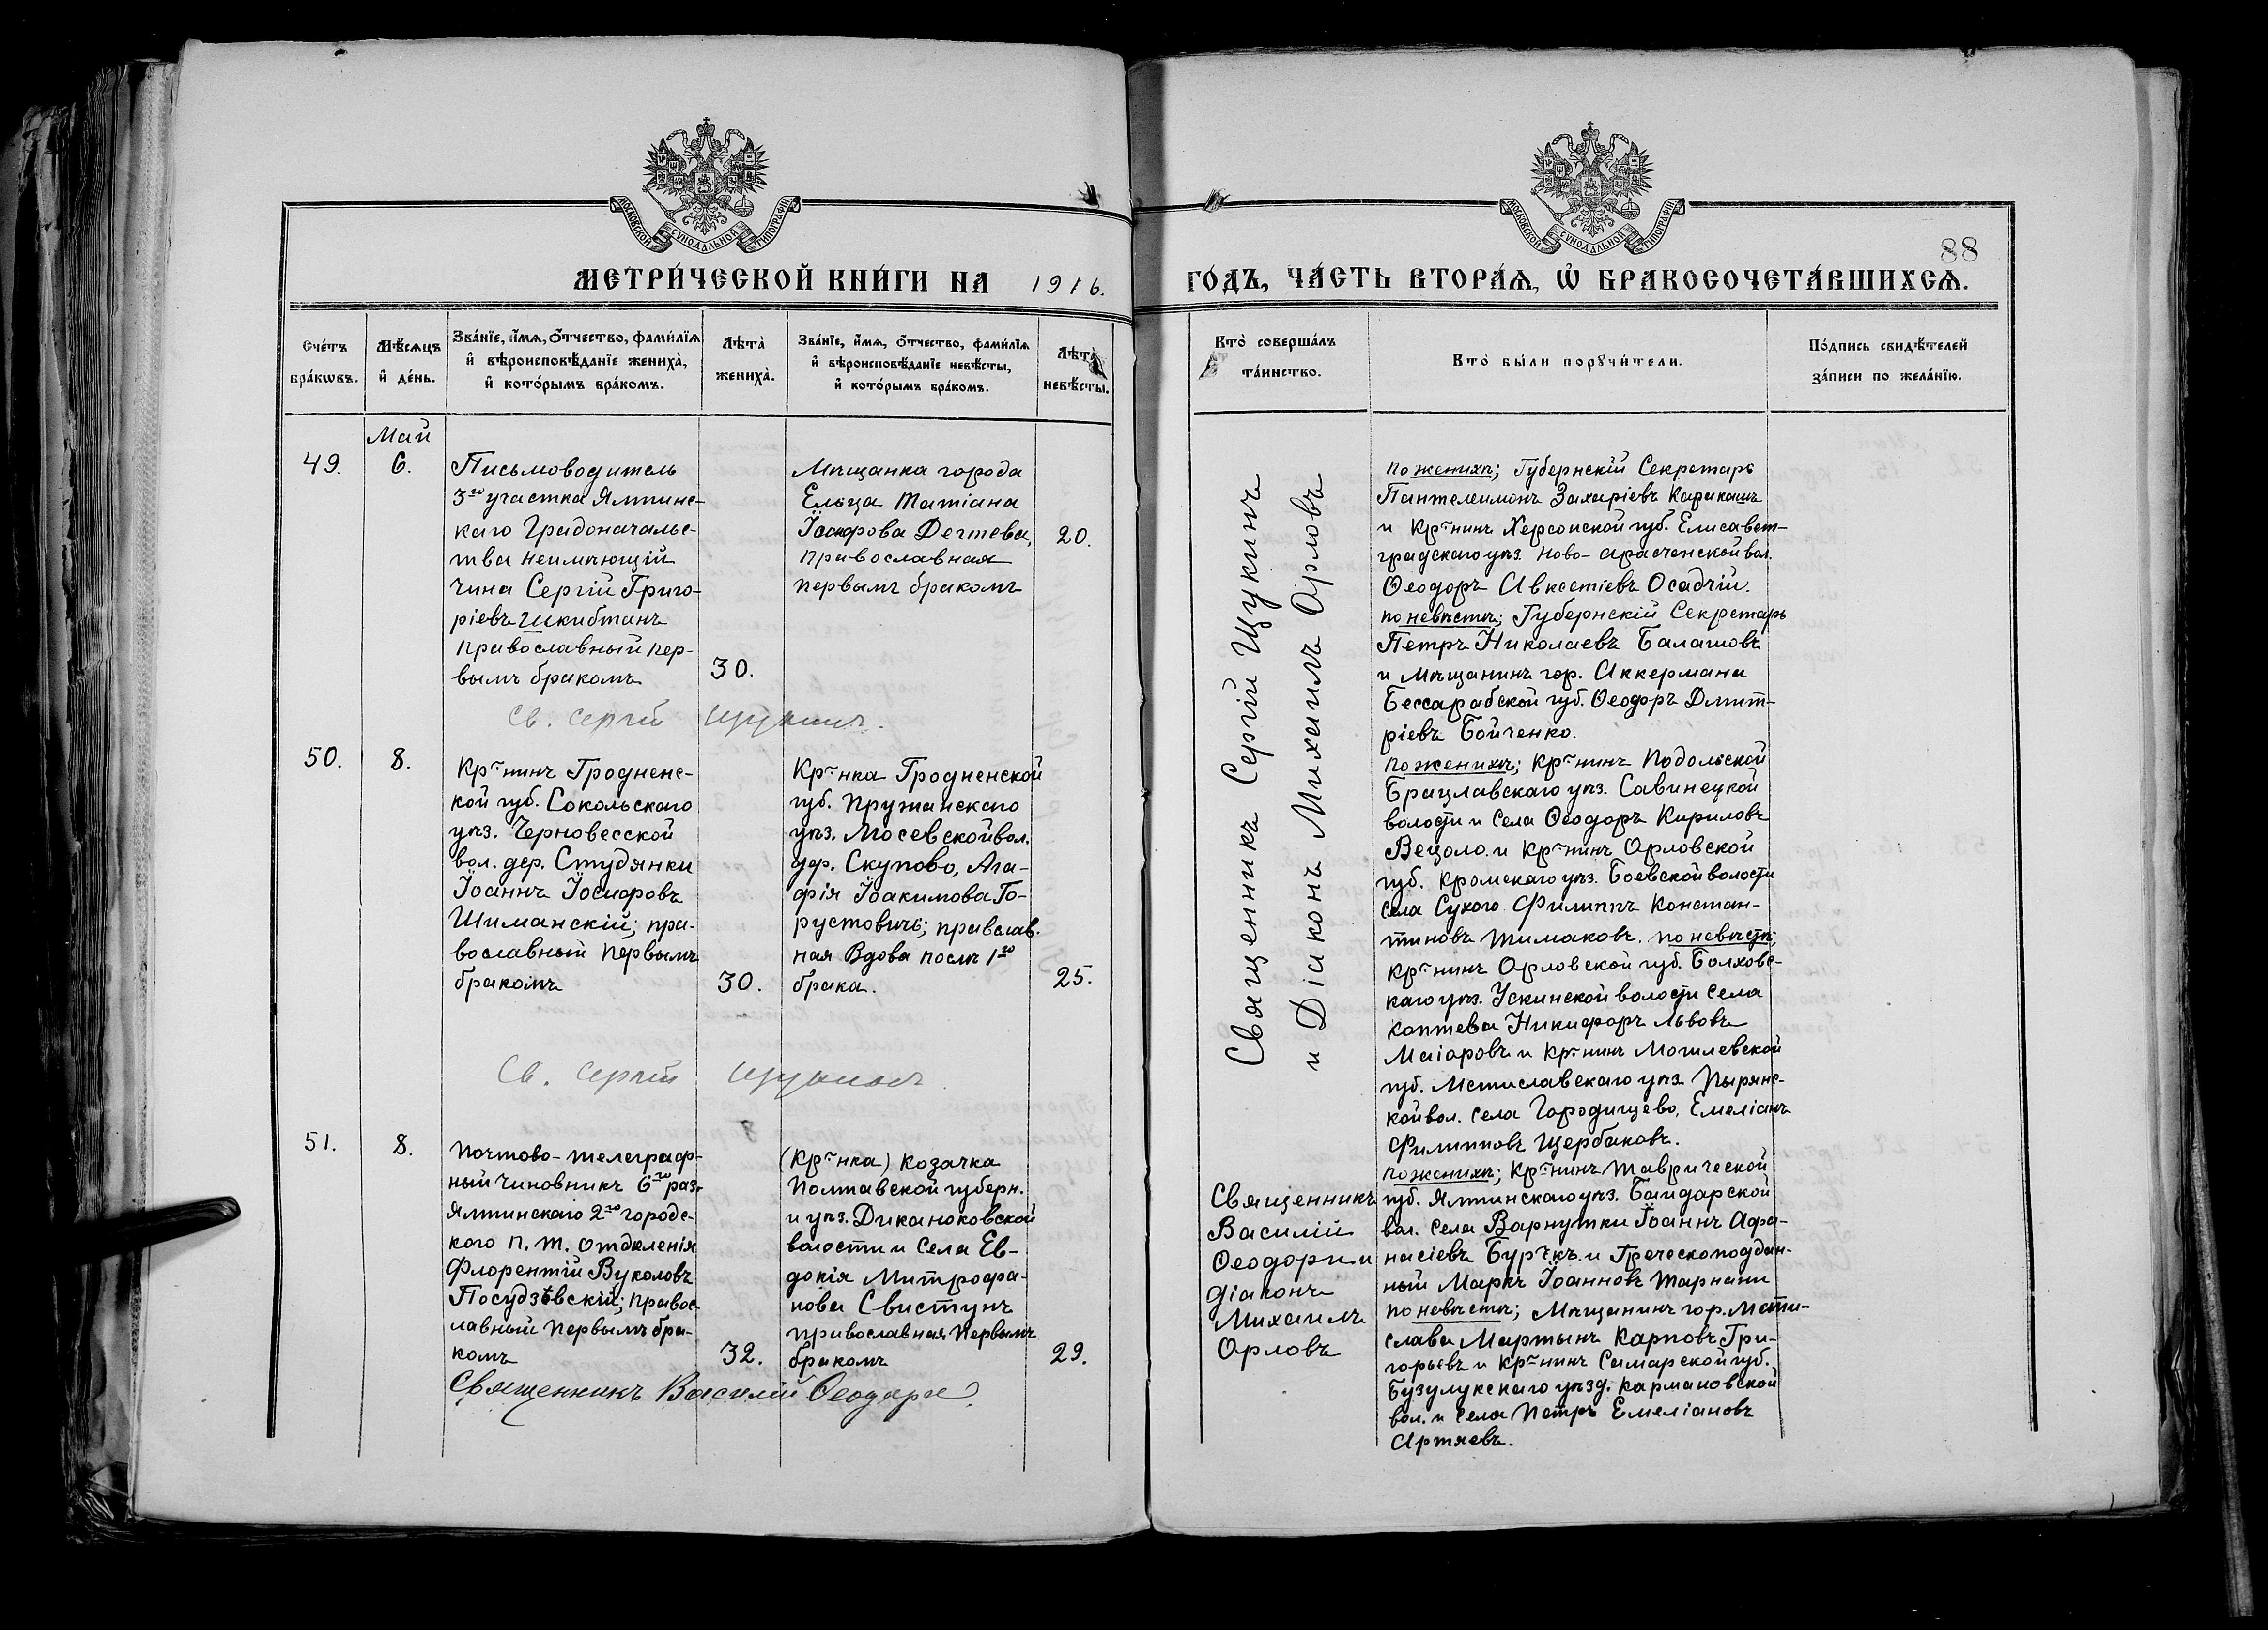 МОСКОВСКОЙ СѴНОДАЛЬНОЙ ТИПОГРАФІИ
МЕТРИ́ЧЕСКОЙ КНИ́ГИ НА 1916.
Сче́тъ бра́кѡвъ.
Мѣ́сѧцъ и҆ де́нь.
Зва́нїе, и҆́мѧ, ѻ҆́тчество, фами́лїѧ
и҆ вѣроисповѣ́данїе жениха̀,
и҆ кото́рымъ бра́комъ.
Лѣта̀ жениха̀.
Зва́нїе, и҆́мѧ, ѻ҆́тчество, фами́лїѧ
и҆ вѣроисповѣ́данїе невѣ́сты,
и҆ кото́рымъ бра́комъ.
Лѣта̀ невѣ́сты.
Май
49.
6.
Письмоводитель
3го участка Ялтинс-
каго Градоначальс-
тва неимѣющій
чина Сергій Григо-
ріевъ Шкибтанъ
православный пер-
вымъ бракомъ
30.
Мѣщанка города
Ельца Татіана
Іосифова Дегтева,
православная
первымъ бракомъ
20.
Св. Сергій Щукинъ.
50.
8.
Кр-нинъ Гродненс-
кой губ. Сокольскаго
уѣз. Черновесской
вол. дер. Студянки
Іоаннъ Іосифовъ
Шиманскій; пра-
вославный первымъ
бракомъ
30.
Кр-нка Гродненской
губ. Пружанскаго
уѣз. Мосевской вол.
дер. Скупово, Ага-
фія Іоакимова Го-
рустовичъ; правслав.
ная Вдова послѣ 1го
брака.
25.
Св. Сергій Щукинъ
51.
8.
Почтово-телеграф-
ный чиновникъ 6го раз.
Ялтинскаго 2го городс-
кого п. т. отдѣленія
Флорентій Вуколовъ
Посудзѣвскій; правос-
лавный первымъ бра-
комъ
32.
(Кр-нка) козачка
Полтавской губерн.
и уѣз. Диканоковской
волости и села Ев-
докія Митрофа-
нова Свистунъ
православная первымъ
бракомъ
29.
Священникъ Василій Ѳеодори
88
МОСКОВСКОЙ СѴНОДАЛЬНОЙ ТИПОГРАФІИ
ГО́ДЪ, ЧА́СТЬ ВТОРА́Ѧ, Ѡ҆ БРАКОСОЧЕТА́ВШИХСѦ.
Кто̀ соверша́лъ
та́инство.
Кто̀ бы́ли порꙋчи́тели.
По́дпись свидѣ́телей
за́писи по жела́нїю.
Священникъ Сергій Щукинъ
и Діаконъ Михаилъ Орловъ
по женихѣ; Губернскій Секретарь
Пантелеимонъ Захаріевъ Каракашъ
и Кр-нинъ Херсонской губ. Елисавет-
градскаго уѣз. Ново-
Ѳеодоръ Авксетіевъ Осадчій.
по невѣстѣ; Губернскій Секретарь
Петръ Николаевъ Балашовъ
и Мѣщанинъ гор. Аккермана
Бессарабской губ. Ѳеодоръ Дмит-
ріевъ Бойченко.
по женихѣ; Кр-нинъ Подольской
Брацлавскаго уѣз. Савинецкой
волости и села Ѳеодоръ Кириловъ
Вецоло и Кр-нинъ Орловской
губ. Кромскаго уѣз. Боевской волости
села Сухого Филиппъ Констан-
тиновъ Тимаковъ. по невѣстѣ;
Кр-нинъ Орловской губ. Болховс-
каго уѣз. Ускинской волости села
Коптева Никифоръ Львовъ
Маіоровъ и Кр-нинъ Могилевской
губ. Мстиславскаго уѣз. Пырянс-
кой вол. села Городищево, Емеліанъ
Филипповъ Щербаковъ.
Священникъ
Василій
Ѳеодори и
діаконъ
Михаилъ
Орловъ
по женихѣ; Кр-нинъ Таврической
губ. Ялтинскаго уѣз. Байдарской
вол. села Варнутки Іоаннъ Афа-
насіевъ и Греческоподдан-
ный Маркъ Іоанновъ Тарнани
по невѣстѣ; Мѣщанинъ гор. Мсти-
слава Мартынъ Карповъ Гри-
горьевъ и Кр-нинъ Самарской губ.
Бузулукскаго уѣзд. Кармановской
вол. и села Петръ Емеліановъ
Артяевъ.